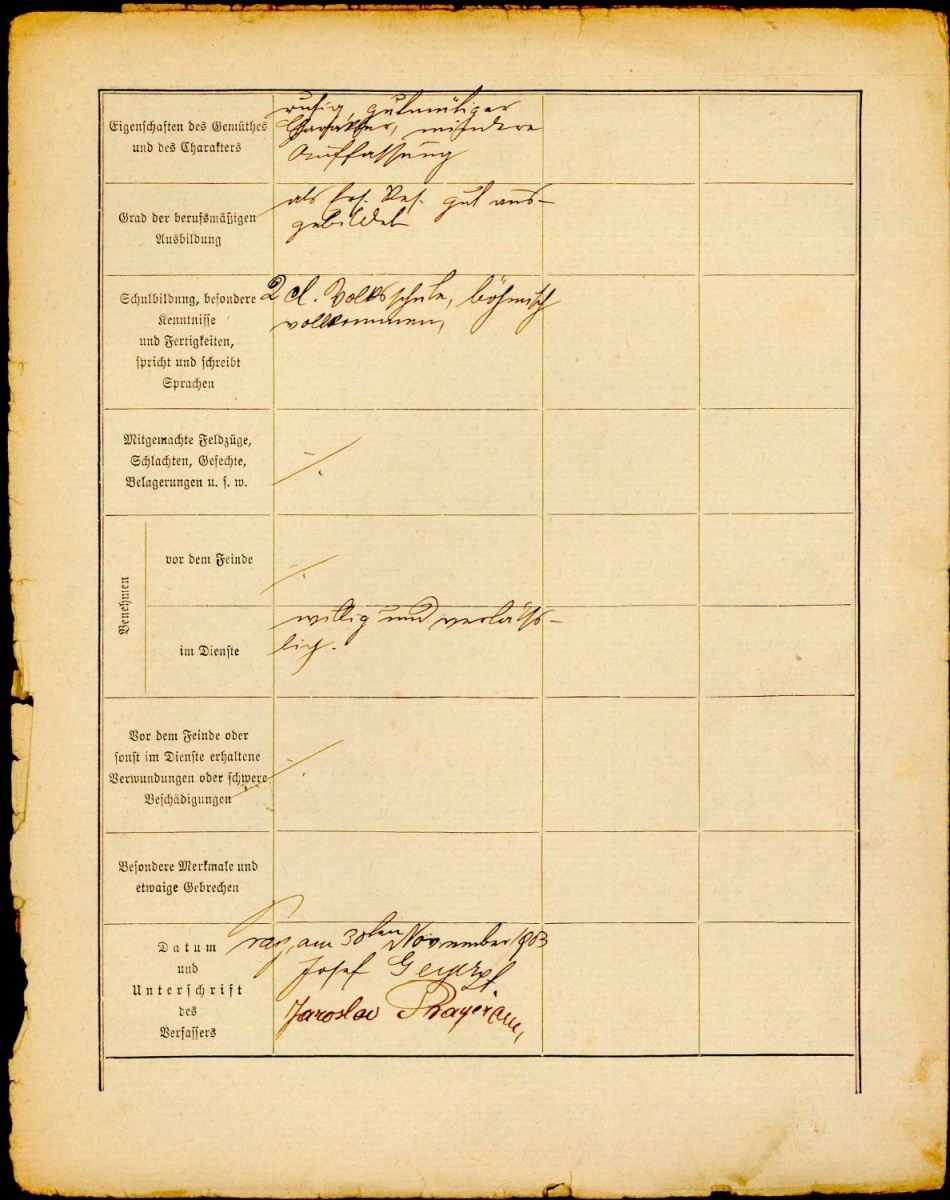 Eigenschaften des Gemüthes
und des Charakters
ruhig, gutmütiger
Charakter, mindere
Auffassung
Grad der berufsmäßigen
Ausbildung
als Ers. Res. gut aus-
gebildet
Schulbildung, besondere
Kenntnisse
und Fertigkeiten,
spricht und schreibt
Sprachen
2 cl. Volksschule, böhmisch
vollkommen,
Mitgemachte Feldzüge,
Schlachten, Gefechte,
Belagerungen u. s. w.
./.
Benehmen
vor dem Feinde
./.
im Dienste
willig und verläss-
lich.
Vor dem Feinde oder
sonst im Dienste erhaltene
Verwundungen oder schwere
Beschädigungen
./.
Besondere Merkmale und
etwaige Gebrechen
Datum
und
Unterschrift
des
Verfassers
Prag, am 30ten November 1903
Josef
Jaroslav